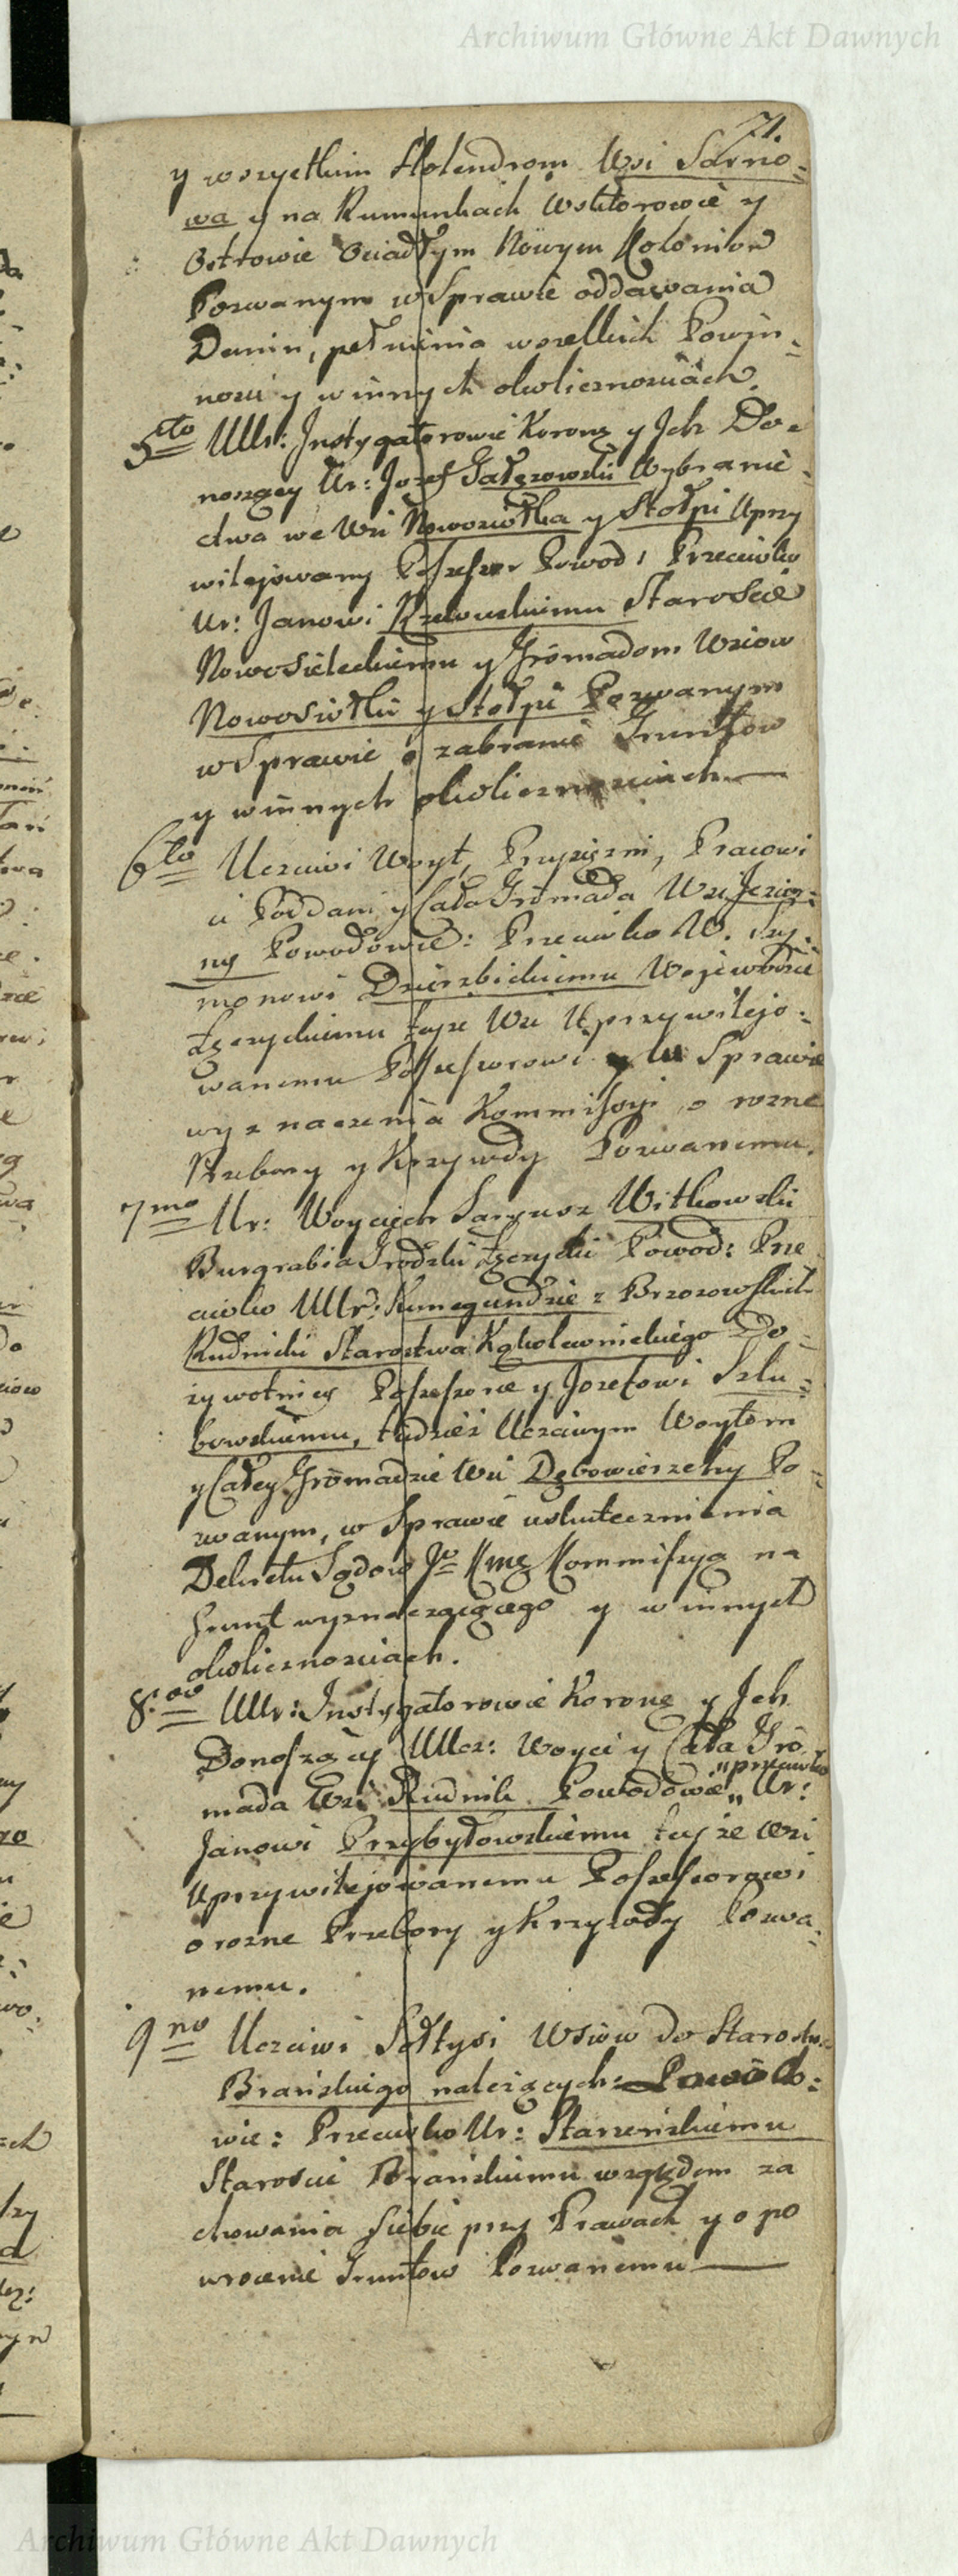 Archiwum Główne Akt Dawnych
71.
y wszytkim Holendrom Wsi Sarno=
wa y na Rumunkach Wsktorowie y
Ostrowie Osiadłym Nowym Kolonion
Pozwanym w Sprawie oddawania
Danin, pełnienia wszelkich Powin=
nosci y w innych okolicznosciach.
5to UUr: Instygatorowie Korony y Jch Do=
noszący Ur: Jozef Gałęzowski Wybranie=
ctwa we Wsi Nowosiołka y Stołpi Uprzy
wilejowany Possessor Powod; Przeciwko
Ur: Janowi Rzewuskiemu Staroscie
Nowosieleckiemu y Gromadom Wsiow
Nowosiołki y Stołpi Pozwanym
w Sprawie o zabranie Gruntow
y w innych okolicznosciach
6to Uczciwi Woyt, Przysięzni, Pracowi
ci Poddani y Cała Gromada Wsi Jezior=
ny Powodowie: Przeciwko W. Szy=
monowi Dzierzbickiemu Wojewodzie
Łęczyckiemu teyze Wsi Uprzywilejo=
wanemu Possessorowi w Sprawie
wyznaczenia Kommissyi o rozne
Przebory y Krzywdy Pozwanemu.
7mo Ur: Woyciech Saryusz Witkowski
Burgrabia Grodzki Łęczycki Powod: Prze
ciwko UUr: Kunegundzie z Brzozowskich
Rudnicki Starostwa Kąkolewnickiego Do=
zywotniey Possessorce y Jozefowi Szlu=
bowskiemu, tudziez Uczciwym Woytom
y Całey Gromadzie Wsi Dębowierzchy Po=
zwanym, w Sprawie uskutecznienia
Dekretu Sądow Jo Kmç Kommissyą na
Grunt wyznaczającego y w innych
okolicznosciach.
8vo UUr: Instygatorowie Korony y Jch
Donoszący UUcz: Woyci y Cała Gro
mada Wsi Rudnik Powodowie „przeciwko„ Ur:
Janowi Przybyłowskiemu teyze Wsi
Uprzywilejowanemu Possessorowi
o rozne Przebory y Krzywdy Pozwa=
nemu.
9no Uczciwi Sołtysi Wsiow do Starostwa
Branskiego nalezących: Powodo=
wie: Przeciwko Ur: Starzenskiemu
Staroscie Branskiemu względem za
chowania siebie przy Prawach y o po
wrocenie Gruntow Pozwanemu
Archiwum Główne Akt Dawnych